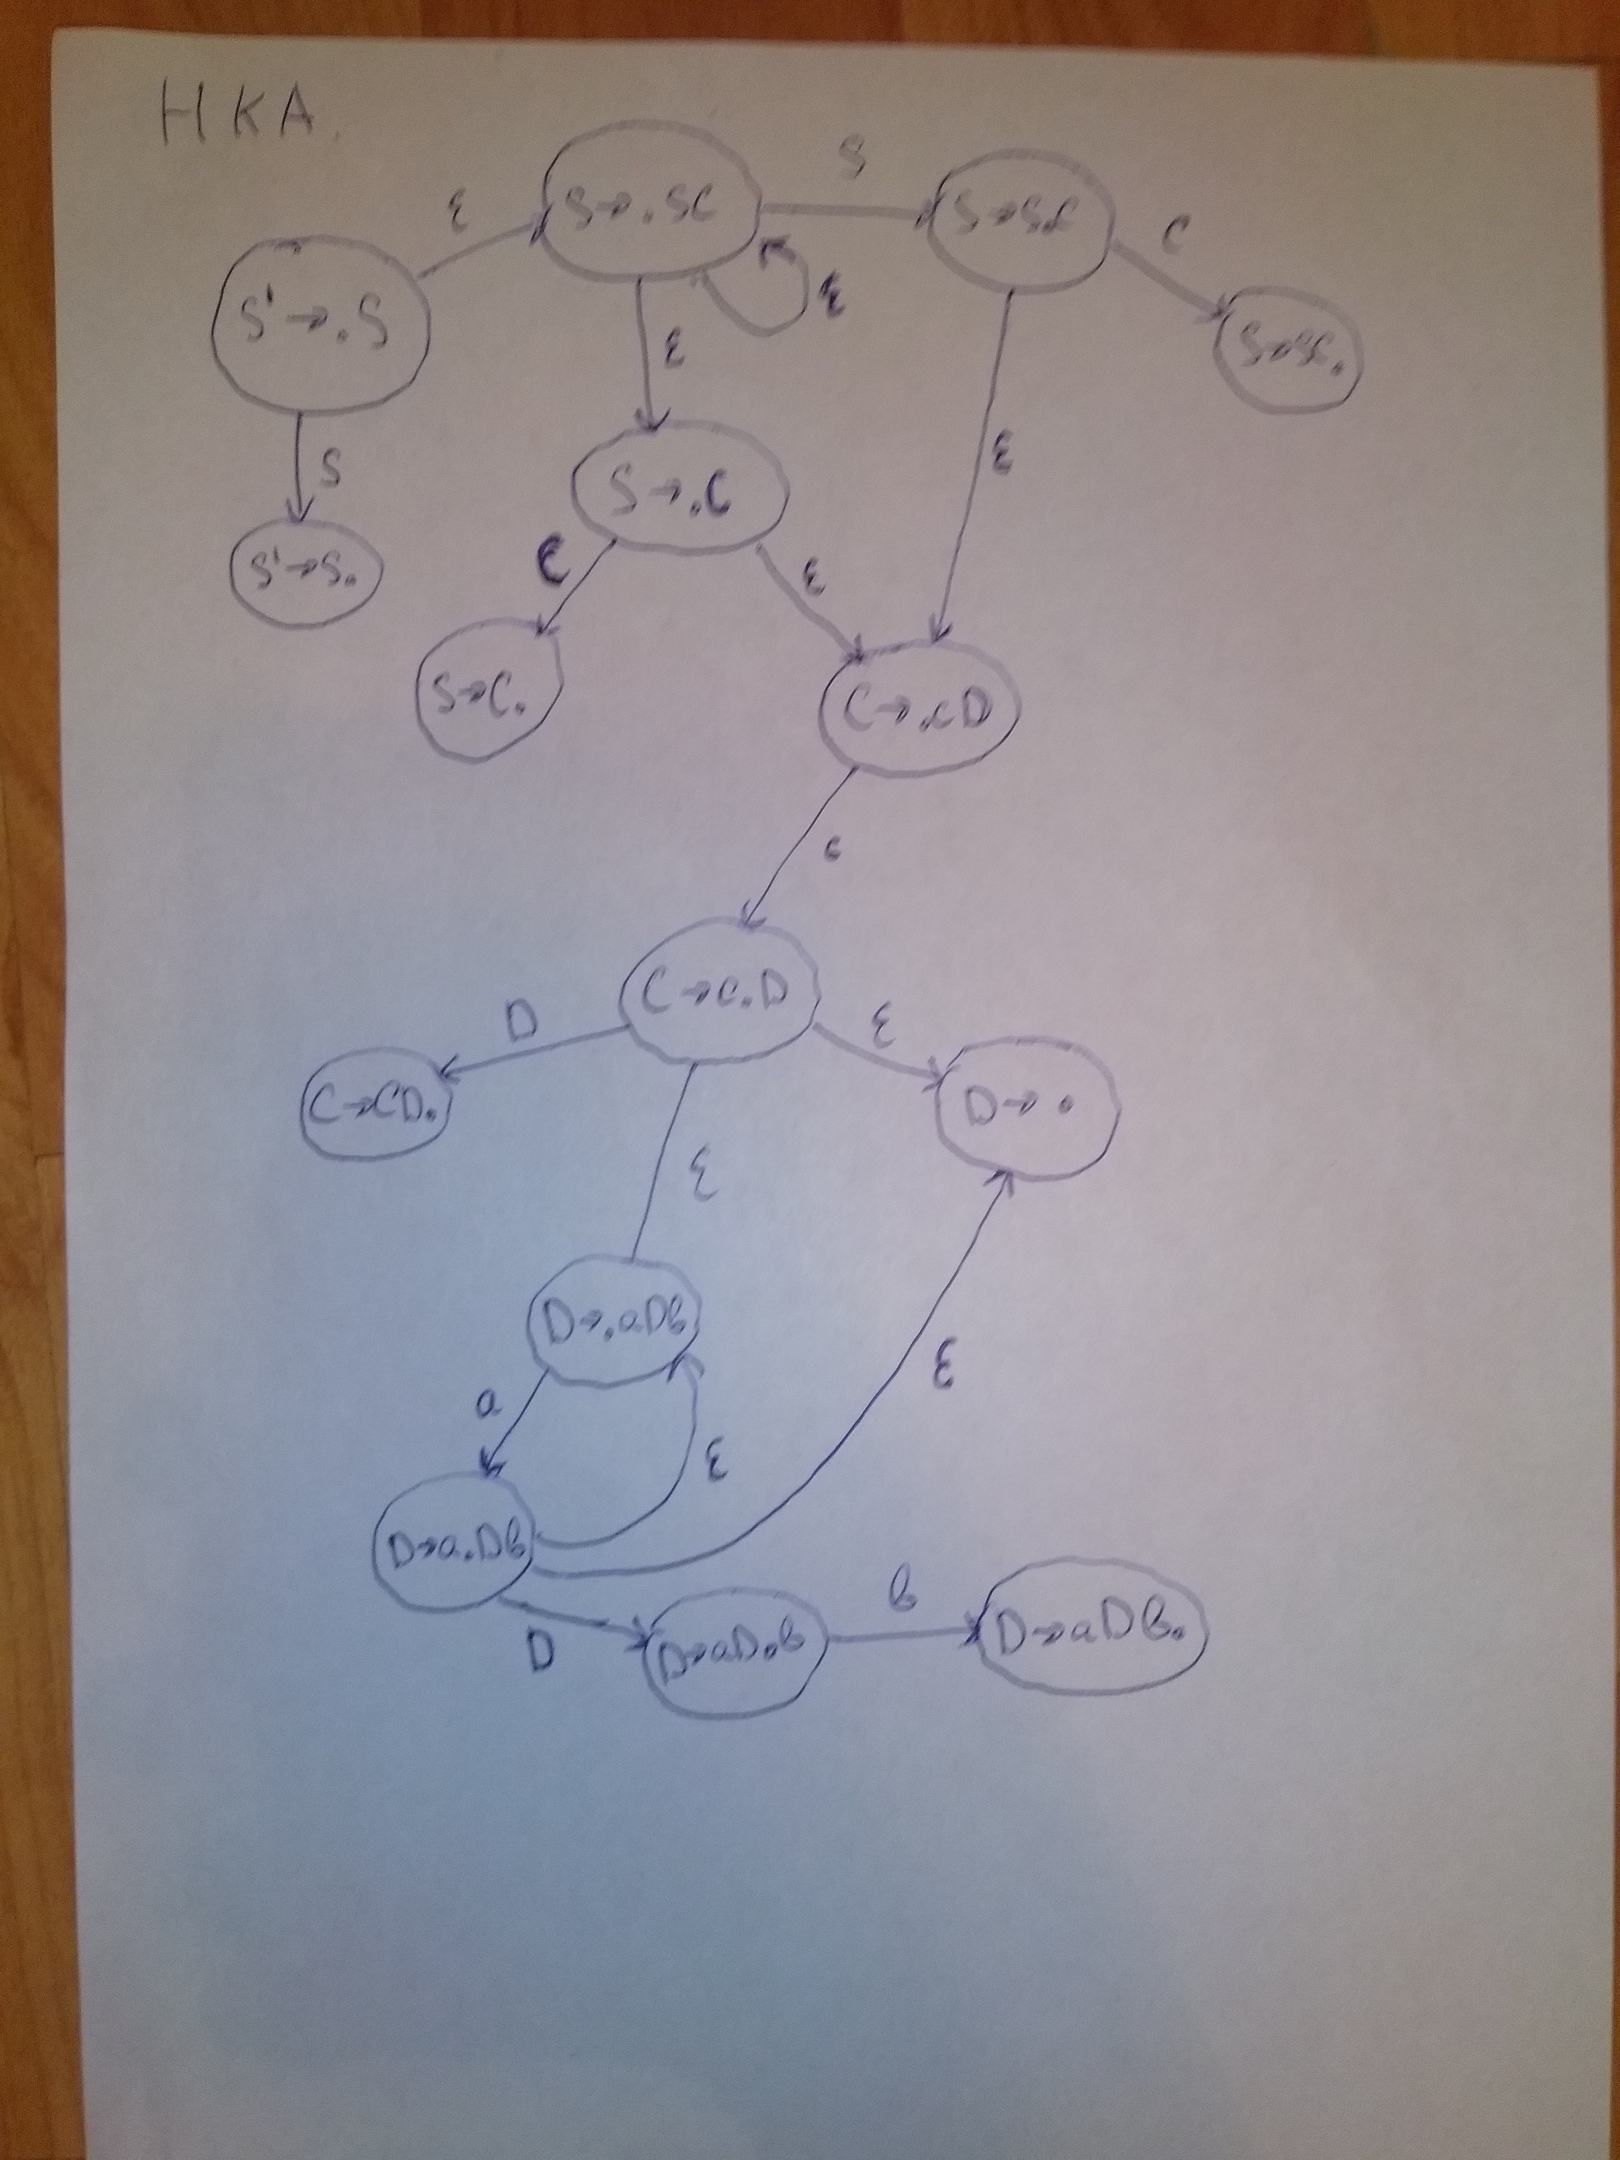 НКА.
ε
S→.SC
S
S→S.C
C
S→SC.
ε
S'→.S
S
S'→S.
ε
S→.C
ε
C
S→C.
ε
C→.cD
c
C→c.D
D
C→CD.
ε
D→.
ε
D→.aDb
a
ε
ε
D→a.Db
D
D→aD.b
b
D→aDb.